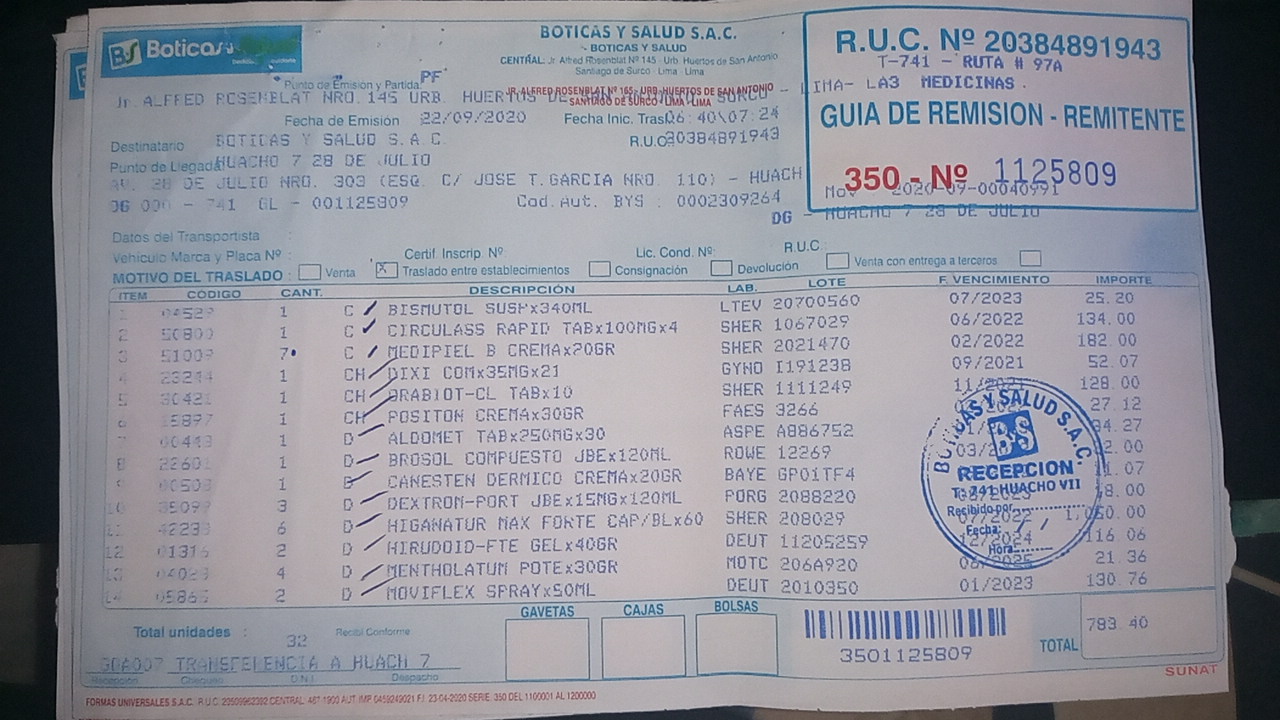 BS Boticas
BOTICAS Y SALUD S.A.C.
BOTICAS Y SALUD
CENTRAL: Jr. Alfred Rosenblat Nº 145 - Urb. Huertos de San Antonio
Santiago de Surco - Lima - Lima
R.U.C. Nº 20384891943
T-741 - RUTA # 97A
LIMA- LA3 MEDICINAS.
GUIA DE REMISION - REMITENTE
350 - Nº 1125809
2020-09-00040991
Punto de Emisión y Partida PF
JR. ALFRED ROSENBLAT Nº 165- URB. HUERTOS DE SAN ANTONIO
SANTIAGO DE SURCO - LIMA - LIMA
Jr. ALFRED ROSENBLAT NRO. 145 URB. HUERTOS DE SURCO -
Fecha de Emisión 22/09/2020 Fecha Inic. Tras. 06:40\07:24
Destinatario BOTICAS Y SALUD S.A.C. R.U.C. 20384891943
Punto de Llegada HUACHO 7 28 DE JULIO
AV. 28 DE JULIO NRO. 303 (ESQ. C/ JOSE T.GARCIA NRO. 110) - HUACH
OG 000 - 741 GL - 001125809 Cod.Aut. BYS : 0002309264
DG - HUACHO 7 28 DE JULIO
Datos del Transportista
Vehículo Marca y Placa Nº : Certif. Inscrip. Nº Lic. Cond. Nº: R.U.C.:
MOTIVO DEL TRASLADO : Venta X Traslado entre establecimientos Consignación Devolución Venta con entrega a terceros
ITEM CÓDIGO CANT. DESCRIPCIÓN LAB. LOTE F. VENCIMIENTO IMPORTE
1 04529 1 C BISMUTOL SUSPx340ML LTEV 20700560 07/2023 25.20
2 50800 1 C CIRCULASS RAPID TABx100MGx4 SHER 1067029 06/2022 134.00
3 51009 7 C MEDIPIEL B CREMAx20GR SHER 2021470 02/2022 182.00
4 23214 1 CH DIXI COMx35MGx21 GYNO I191238 09/2021 52.07
5 30421 1 CH ORABIOT-CL TABx10 SHER 1111249 11/2021 128.00
6 15897 1 CH POSITON CREMAx30GR FAES 3266 27.12
7 00443 1 D ALDOMET TABx250MGx30 ASPE A886752 34.27
8 22601 1 D BROSOL COMPUESTO JBEx120ML ROWE 12269
9 00503 1 D CANESTEN DERMICO CREMAx20GR BAYE GP01TF4
10 35099 3 D DEXTRON-PORT JBEx15MGx120ML PORG 2088220 18.00
11 42233 6 D HIGANATUR MAX FORTE CAP/BLx60 SHER 208029 07/2022
12 01316 2 D HIRUDOID-FTE GELx40GR DEUT 11205259 12/2024 116 06
13 04023 4 D MENTHOLATUM POTEx30GR MOTC 206A920 21.36
14 05865 2 D MOVIFLEX SPRAYx50ML DEUT 2010350 01/2023 130.76
BOTICAS Y SALUD S.A.C.
BS
RECEPCION
T-741 HUACHO VII
Recibido por
Fecha: / /
Hora:
GAVETAS CAJAS BOLSAS
Total unidades : 32 Recibí Conforme
TOTAL 783.40
3501125809
GOA007 TRANSFERENCIA A HUACH 7
Recepción Chequeo D.N.I. Despacho
SUNAT
FORMAS UNIVERSALES S.A.C. R.U.C. 20509962382 CENTRAL: 467 1900 AUT. IMP. 0459249021 F.I. 23-04-2020 SERIE: 350 DEL 1100001 AL 1200000